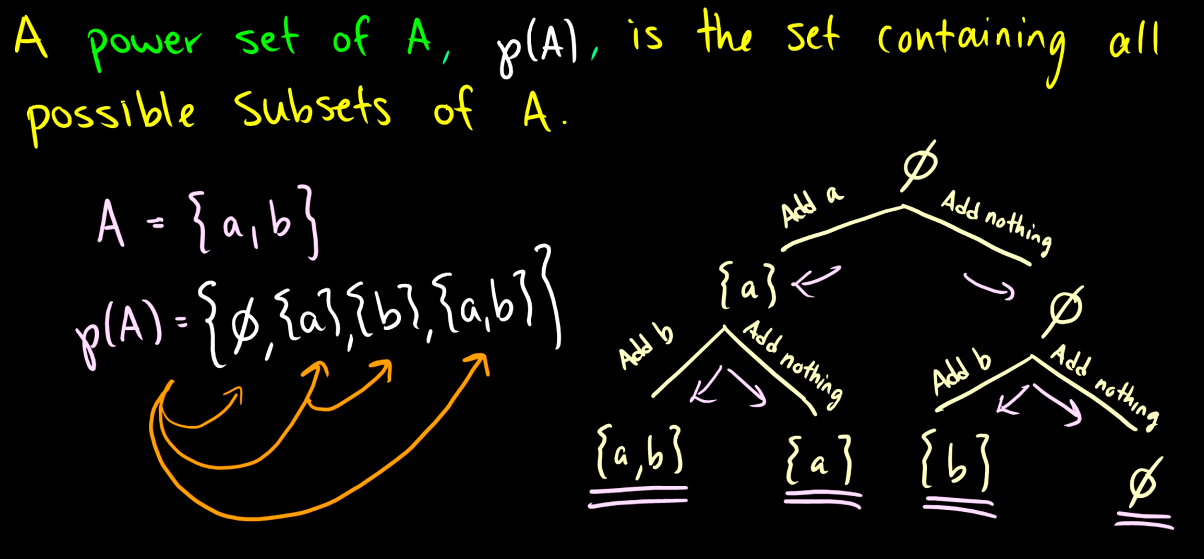 A power set of A, p(A), is the set containing all
possible subsets of A.
A = {a,b}
p(A) = {∅,{a},{b},{a,b}}
∅
Add a
Add nothing
{a}
∅
Add b
Add nothing
Add b
Add nothing
{a,b}
{a}
{b}
∅